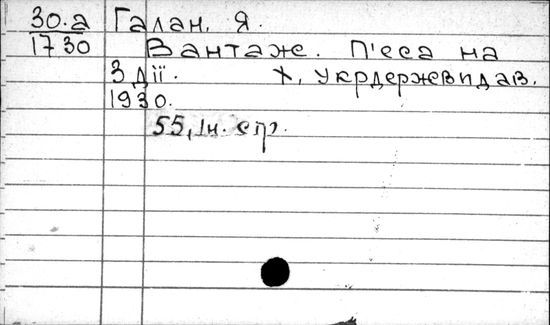 30.а Галан, Я.
1730 Вантаж. П'еса на
3 дії. Х, Укрдержвидав.
1930.
55, 1н. стр.